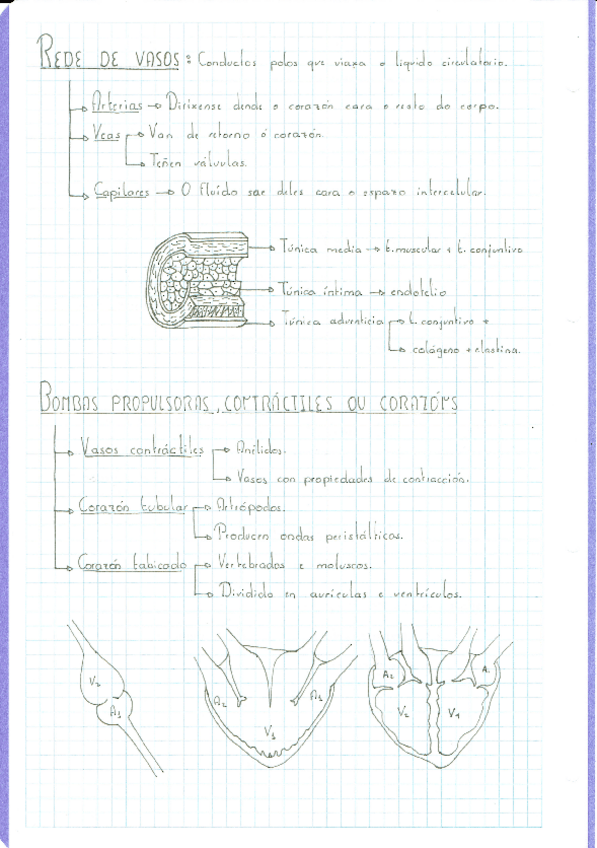 REDE DE VASOS: Conductos polos que viaxa o líquido circulatorio.
Arterias → Dirixense dende o corazón cara o resto do corpo.
Veas → Van de retorno ó corazón.
→ Teñen válvulas.
Capilares → O fluído sae deles cara o espazo intercelular.
Túnica media → t. muscular + t. conjuntivo
Túnica íntima → endotelio
Túnica adventicia → t. conjuntivo +
→ colágeno + elastina.
BOMBAS PROPULSORAS, CONTRÁCTILES OU CORAZÓNS
Vasos contráctiles → Anélidos.
→ Vasos con propiedades de contracción.
Corazón tubular → Artrópodos.
→ Producen ondas peristálticas.
Corazón tabicado → Vertebrados e moluscos.
→ Dividido en aurículas e ventrículos.
A2 A1 A2 A.
V2 V2 V1
A1 V1